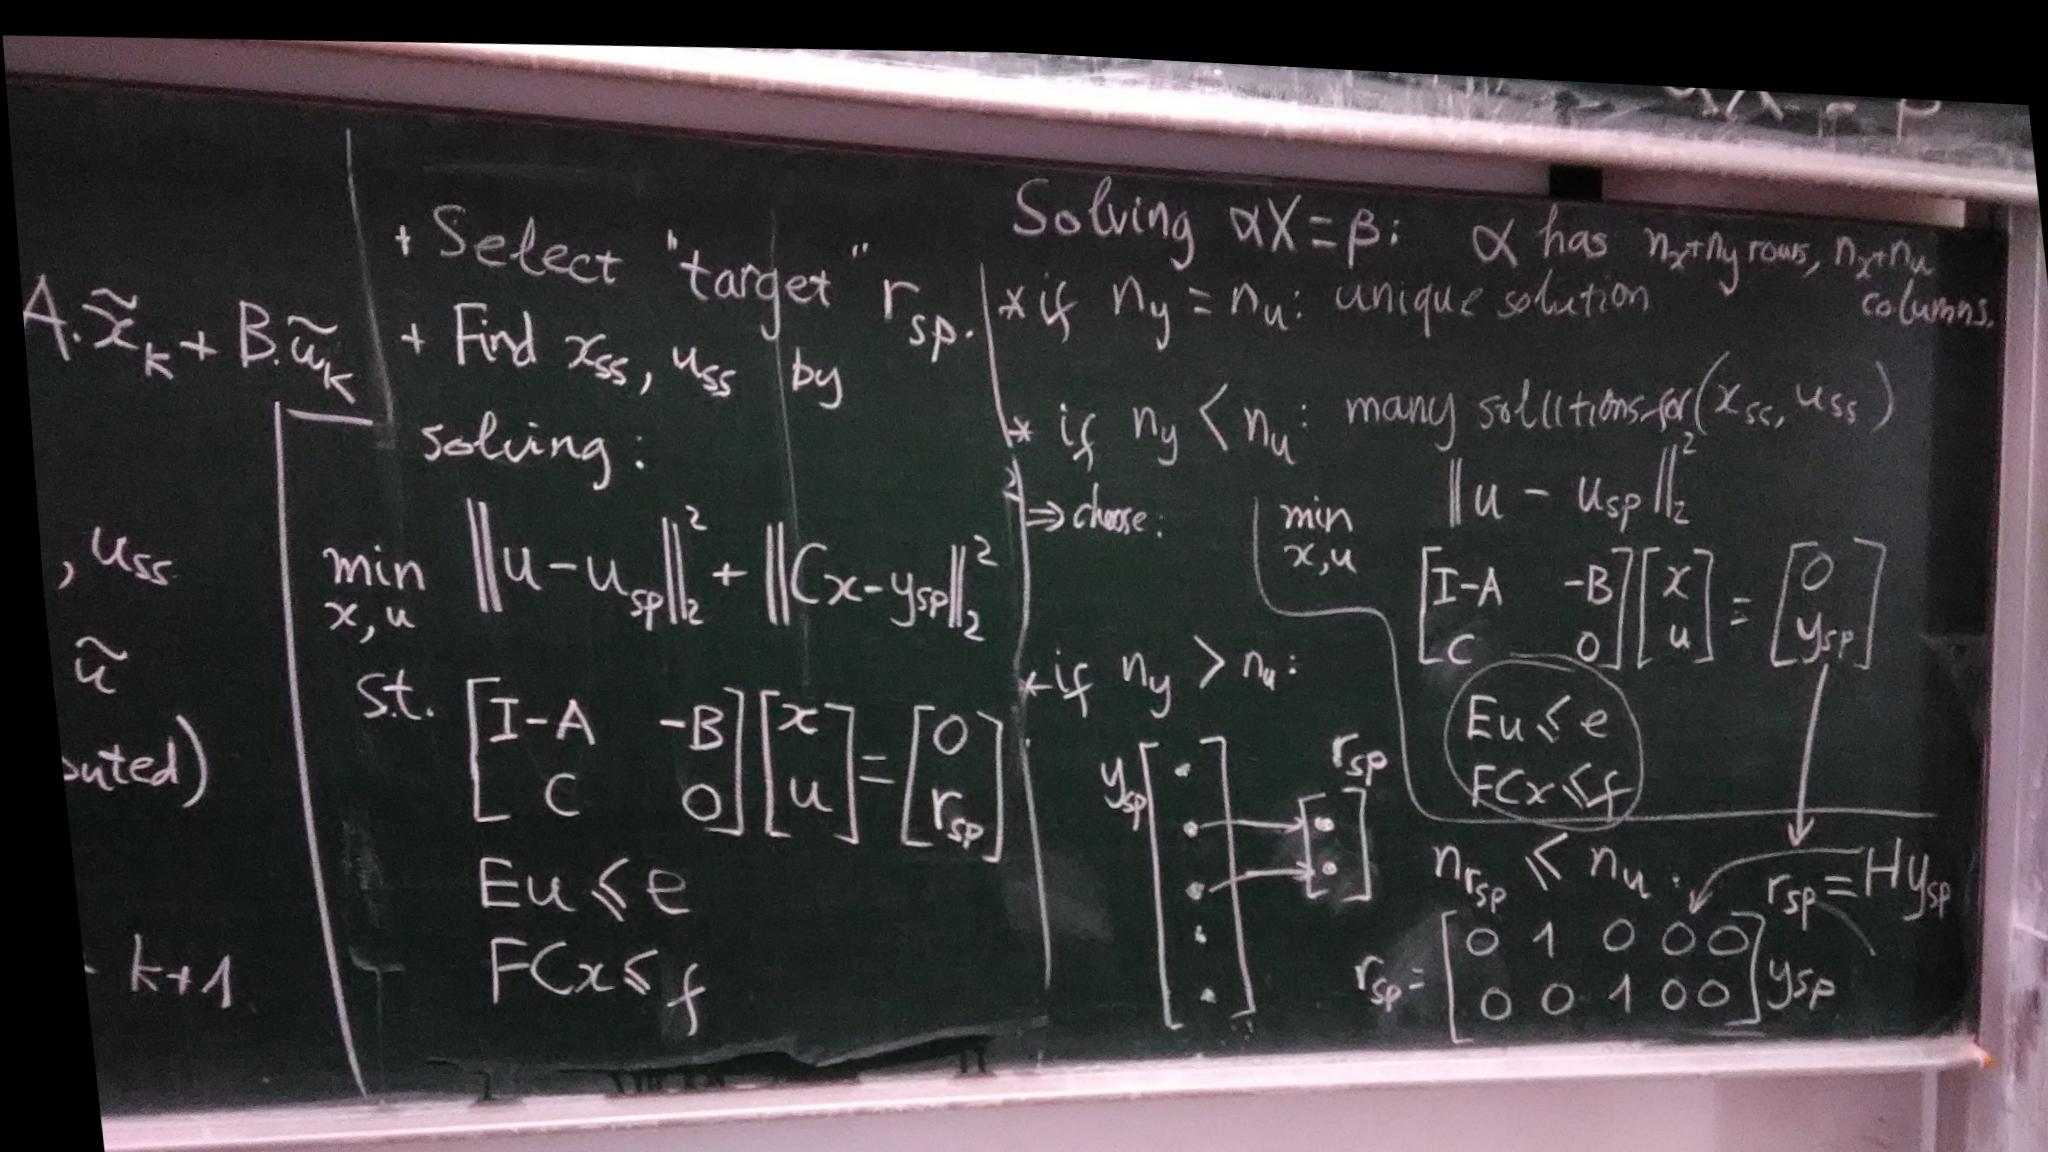 A.x̃_k + B.ũ_k
, u_ss
ũ
k+1
+ Select "target" r_sp.
+ Find x_ss, u_ss by
solving:
min ‖u-u_sp‖₂² + ‖Cx-y_sp‖₂²
x,u
s.t. [I-A -B] [x] = [0]
[C 0] [u] [r_sp]
Eu ≤ e
FCx ≤ f
Solving αX=β: α has n_x+n_y rows, n_x+n_u
columns.
* if n_y = n_u: unique solution
* if n_y < n_u: many solutions for (x_ss, u_ss)
⇒ choose: min ‖u - u_sp‖₂²
x,u
[I-A -B] [x] = [0]
[C 0] [u] [y_sp]
Eu ≤ e
FCx ≤ f
* if n_y > n_u:
y_sp r_sp
n_{r_sp} ≤ n_u. r_sp = Hy_sp
r_sp = [0 1 0 0 0] y_sp
[0 0 1 0 0]